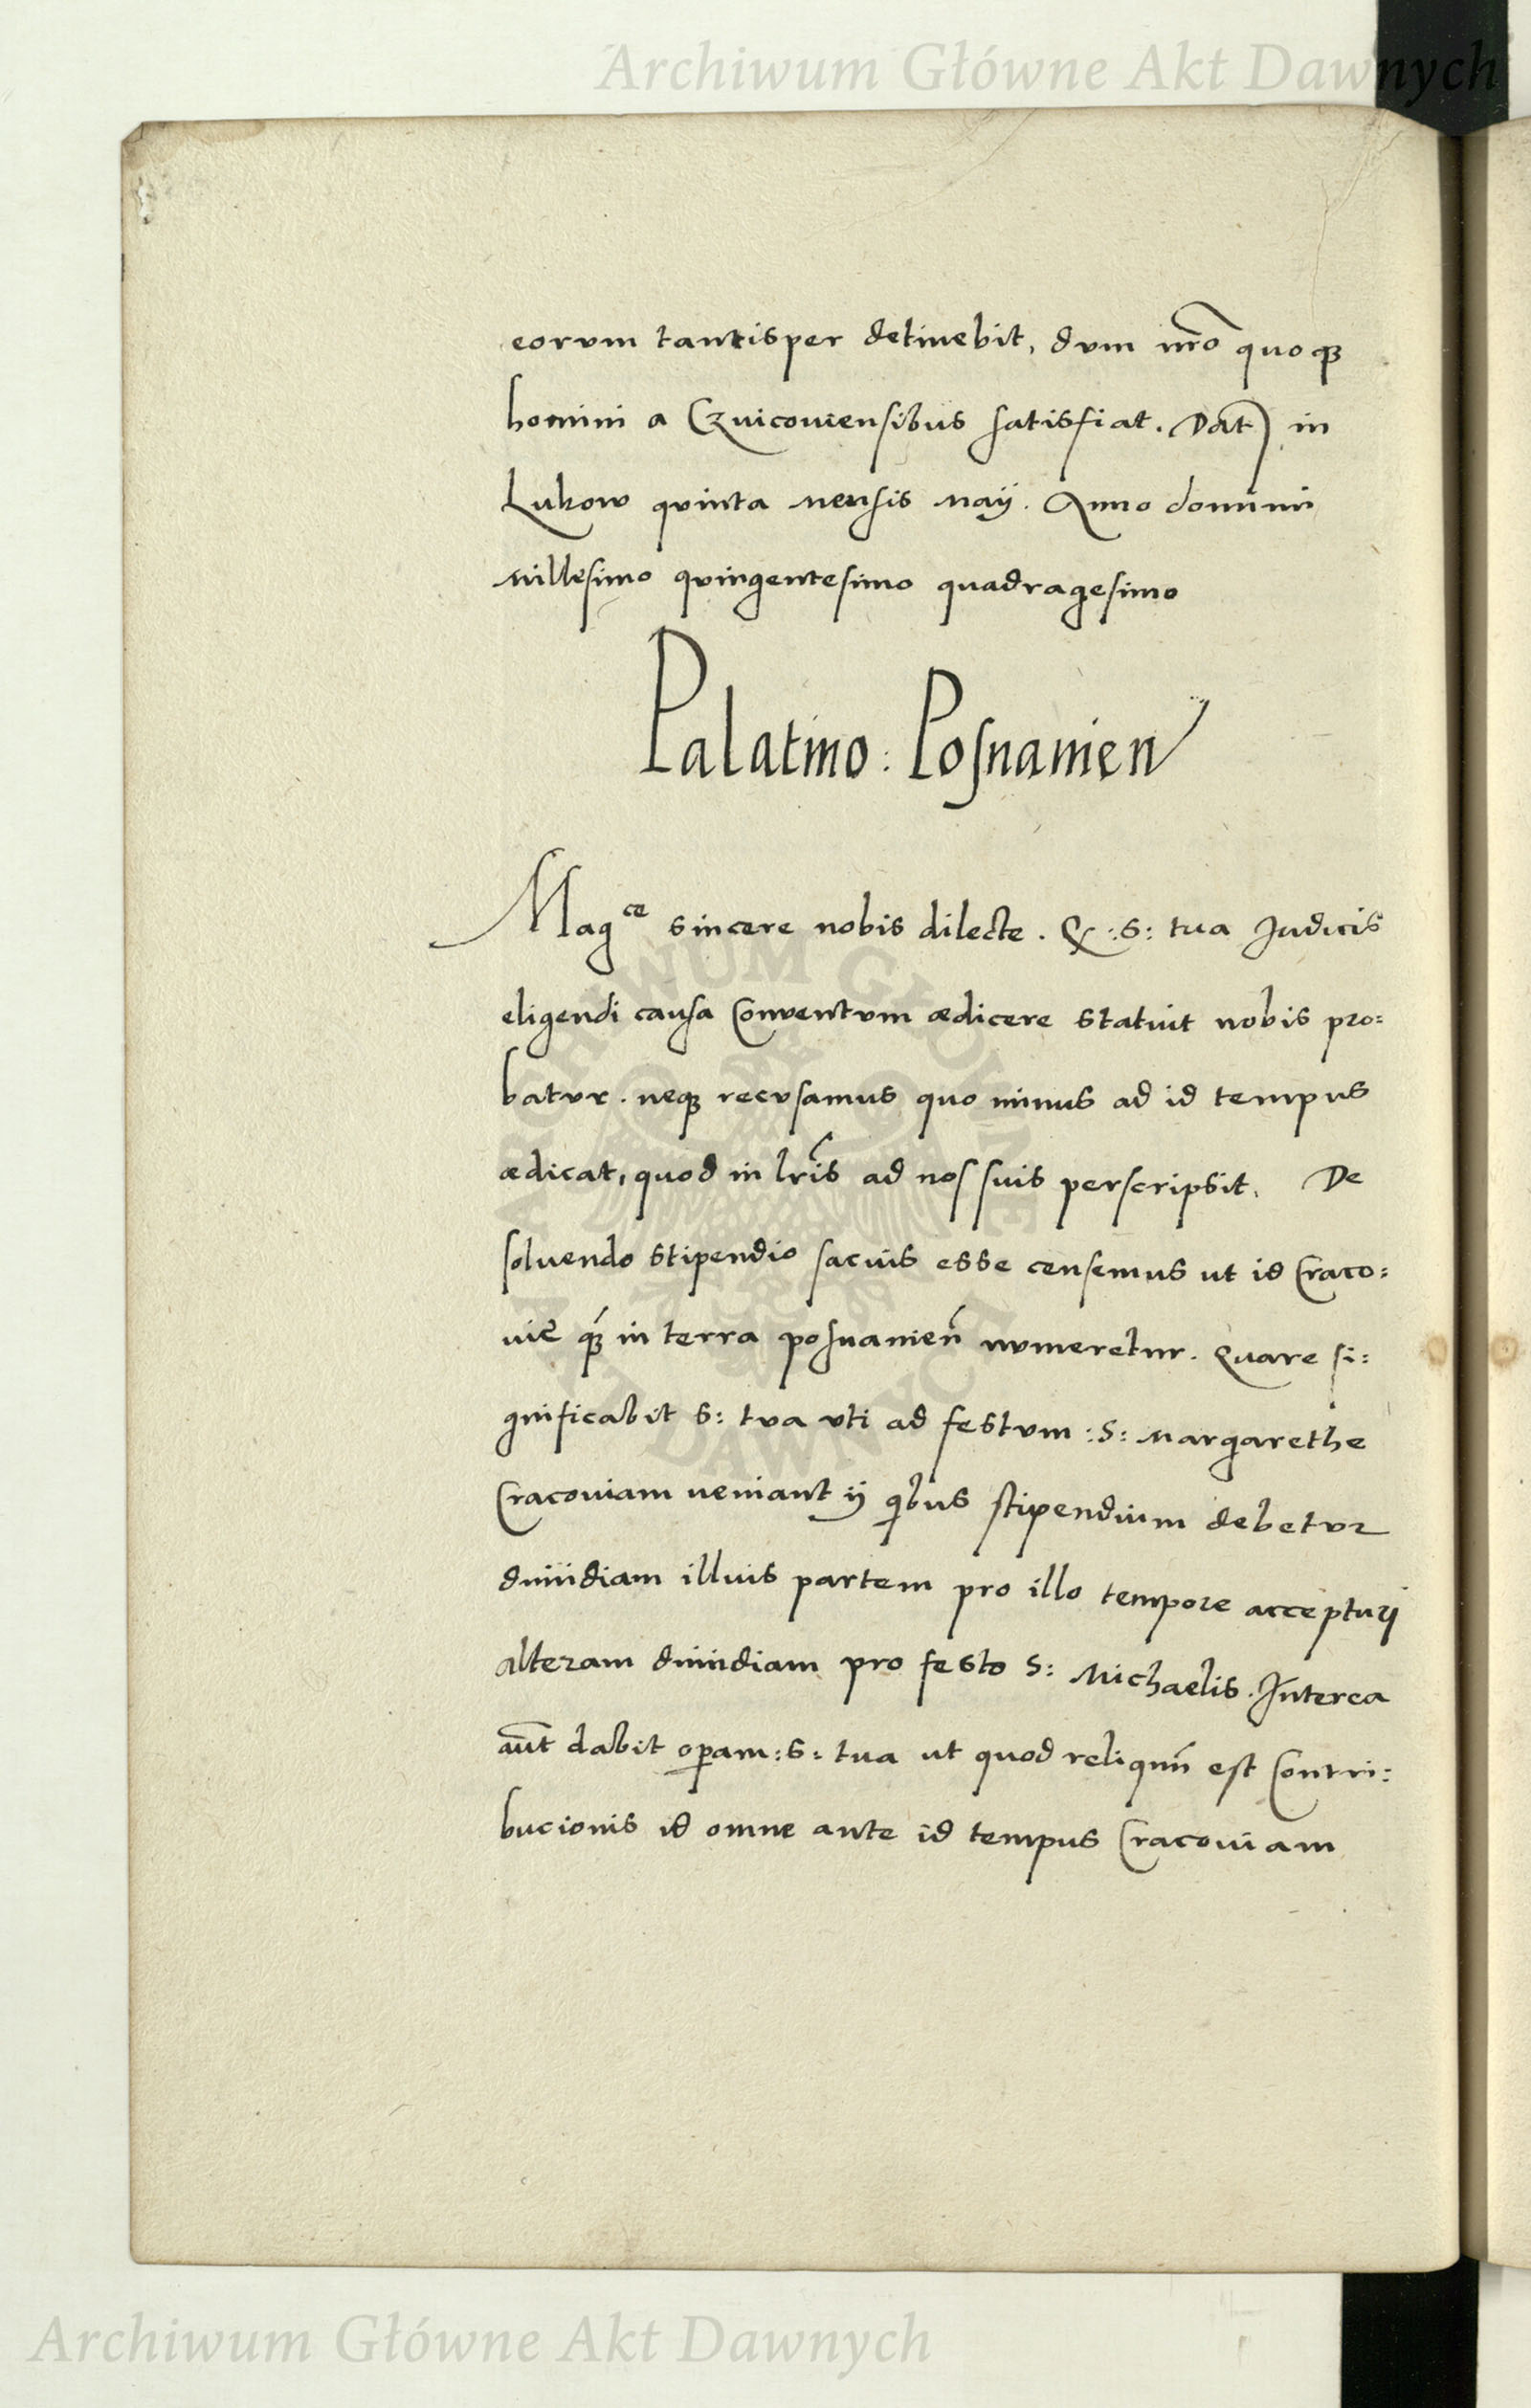 Archiwum Główne Akt Dawnych
eorum tantisper detinebit, dum nr̃o quoqꝫ
homini a Czvicouiensibus satisfiat. Dat in
Lukow quinta mensis maij. Anno domini
millesimo quingentesimo quadragesimo
Palatino: Posnanien
Mag^ce sincere nobis dilecte. Q :S: tua Judicis
eligendi causa Conuentum ædicere statuit nobis pro:
batur. neqꝫ recusamus quo minus ad id tempus
ædicat, quod in lr̃is ad nos suis perscripsit. De
soluendo stipendio sacius esse censemus ut id Craco:
uię qꝫ́ in terra posnanień numeretur. Quare si:
gnificabit S: tua uti ad festum :S: Margarethe
Cracouiam ueniant ij qibus stipendium debetur
dimidiam illius partem pro illo tempore accepturi
alteram dimidiam pro festo S: Michaelis. Interea
aũt dabit oꝑam :S: tua ut quod reliquũ est Contri:
bucionis id omne ante id tempus Cracouiam
ARCHIWUM GŁÓWNE AKT DAWNYCH
Archiwum Główne Akt Dawnych